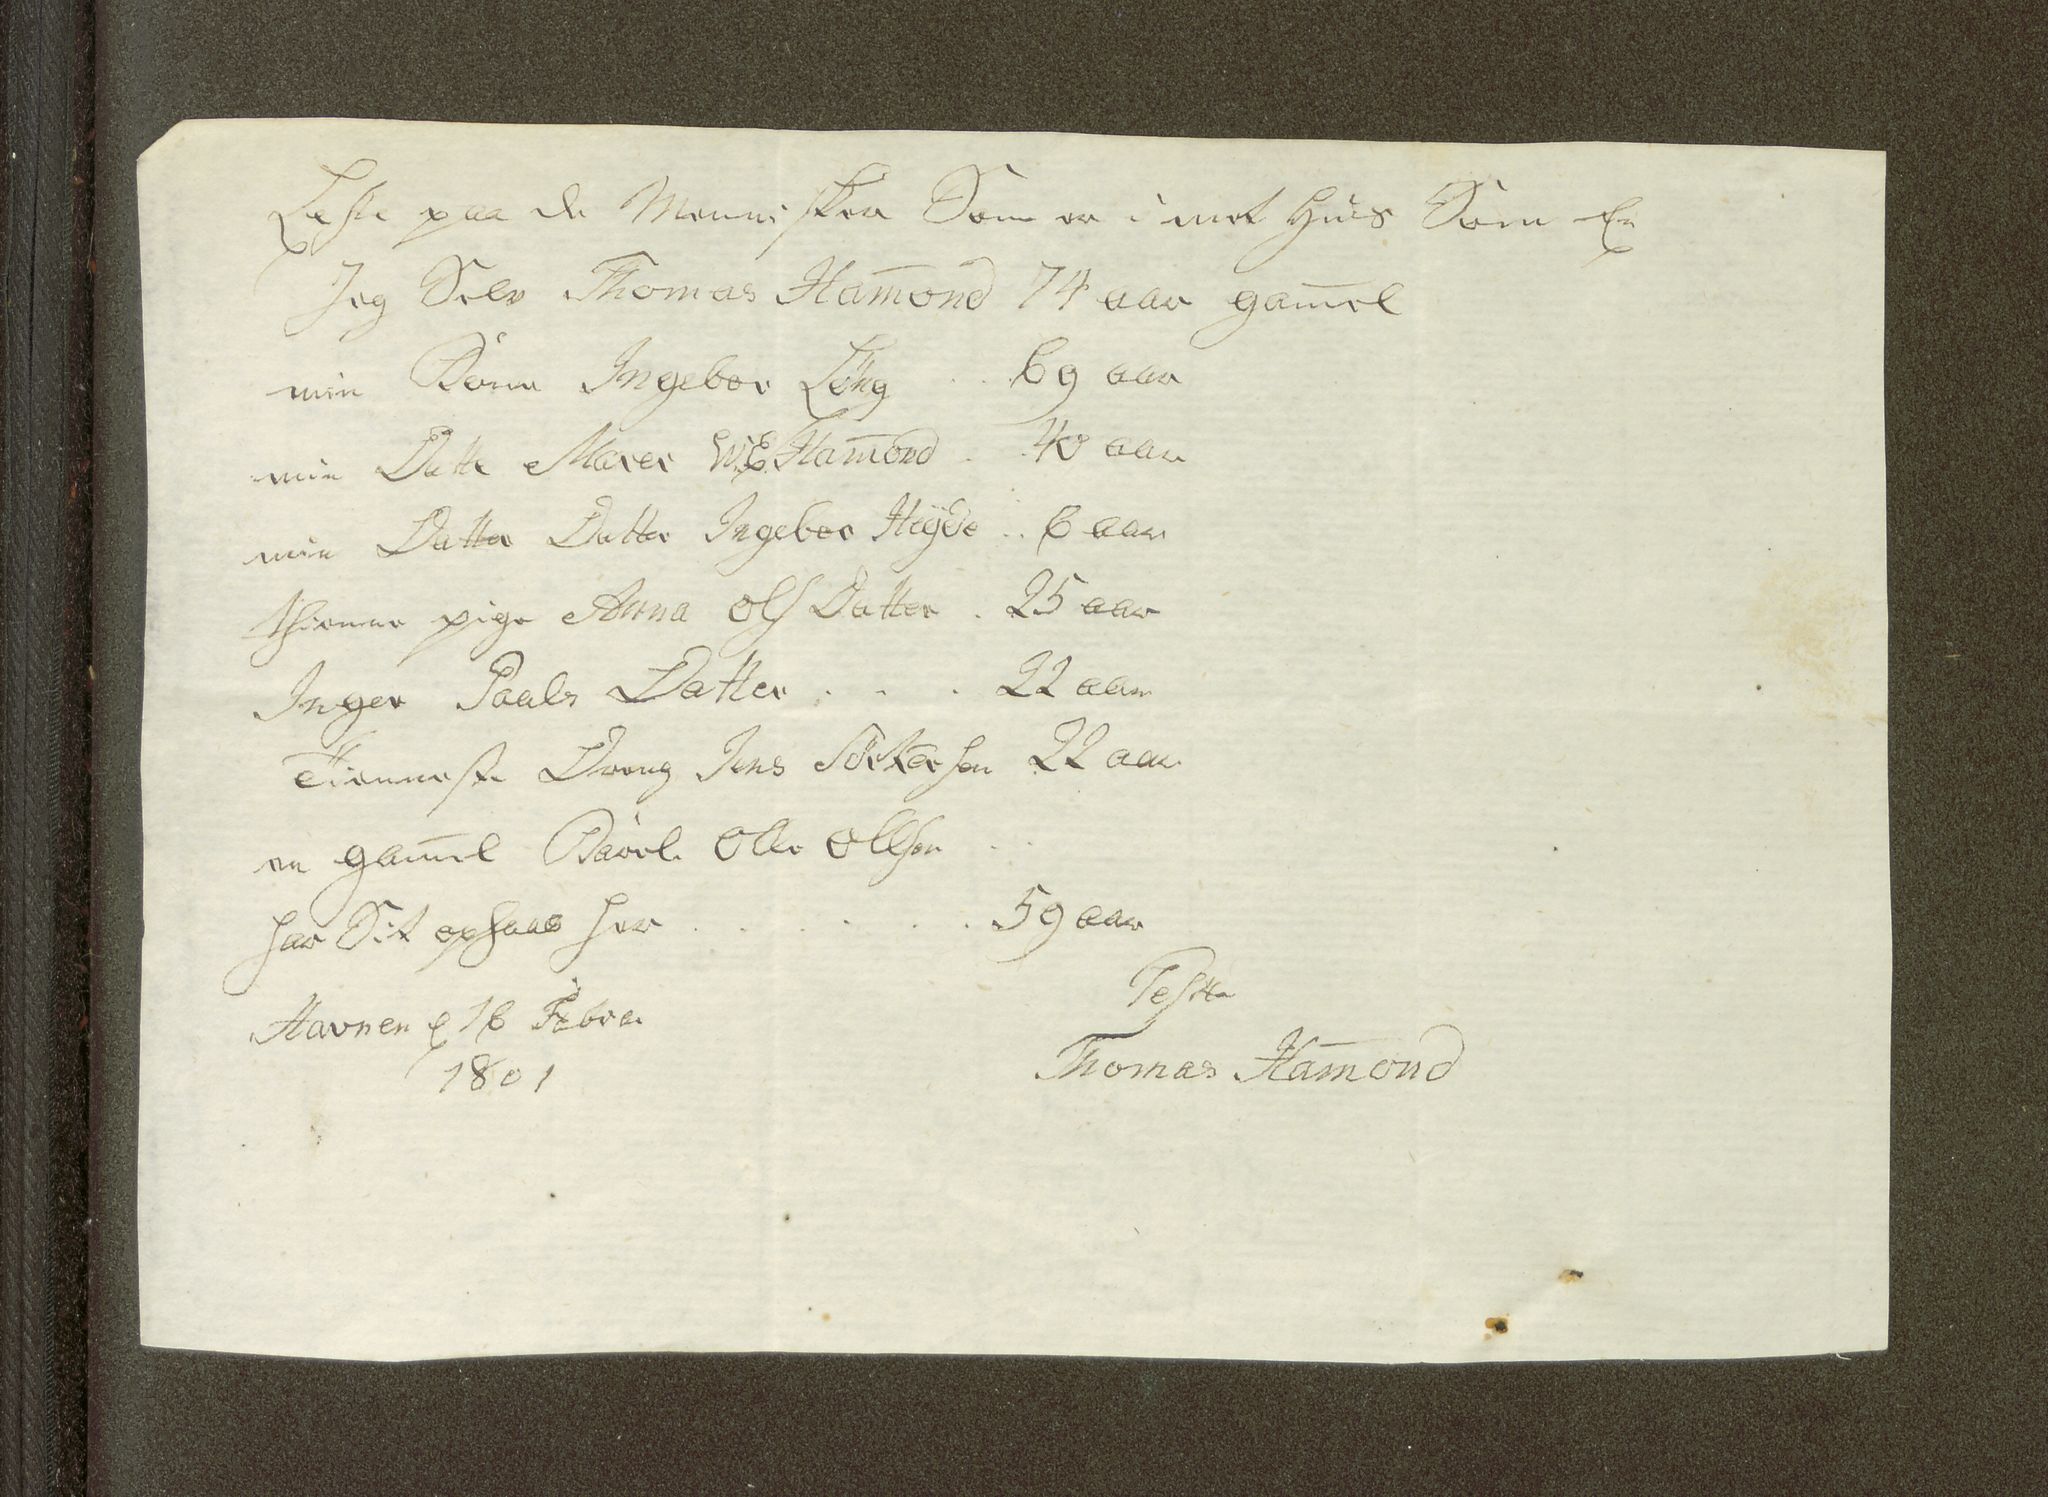 Leste paa de Mennisker Som er i mit Huus Som Er
Jeg Selv Thomas Ham̄ond 74 aar gam̄el
min Kone Ingebor Löng .. 69 aar
min Datt Maren W.E. Ham̄ond . . 40 aar
min Datter Datter Ingebor Heÿde .. 6 aar
thienne pige Anna Ols Datter . 25 aar
Inger Paals Datter . . . 22 aar
Tienneste Dreng Jens 22 aar
en gam̄el Karl Olle Ollsen . .
har Sit ophaas her . . . . . . 59 aar
Havnen d 16 Febru
1801
Teste
Thomas Ham̄ond